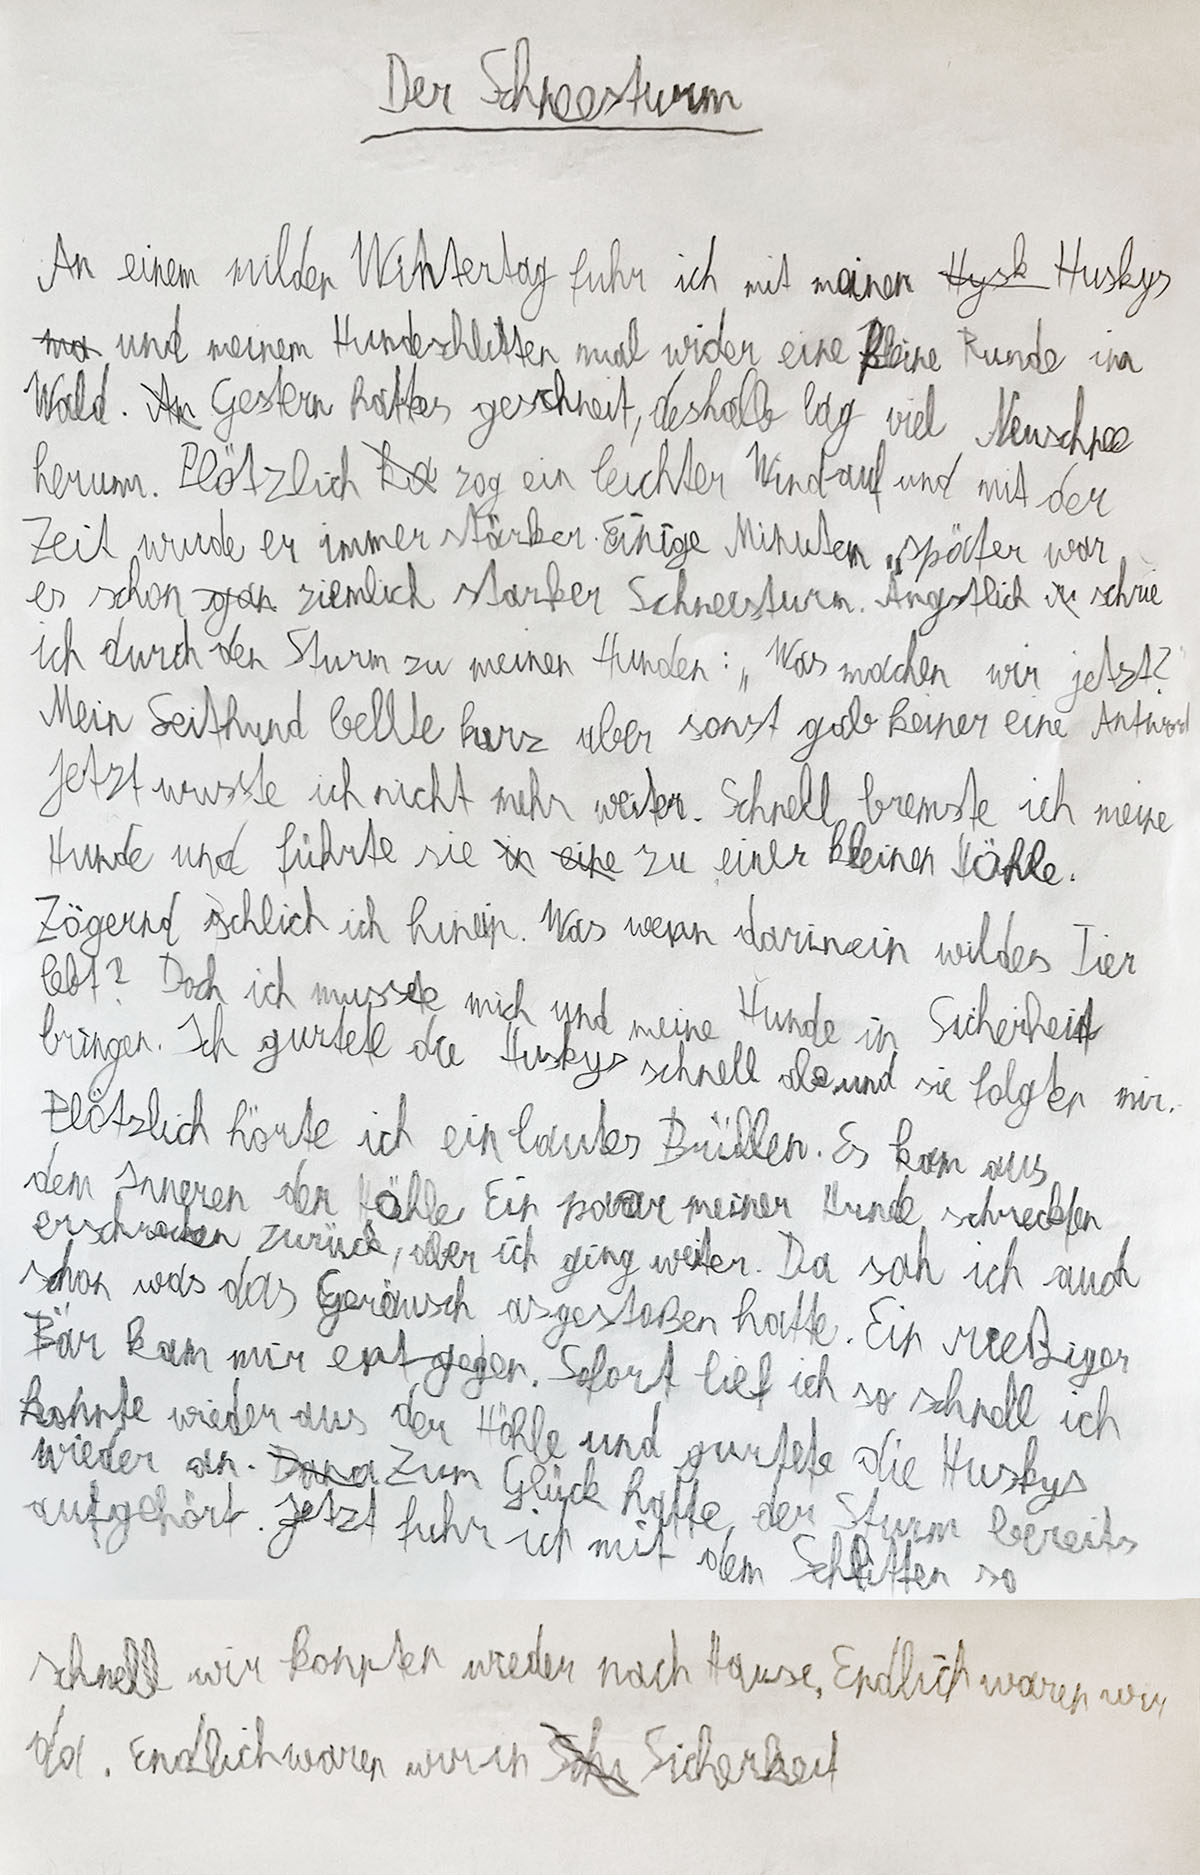 Der Schneesturm
An einem milden Wintertag fuhr ich mit meinen Hysk Huskys
ma und meinem Hundeschlitten mal wider eine kleine Runde im
Wald. An Gestern hattes geschneit, deshalb lag viel Neuschnee
herum. Plötzlich ka zog ein leichter Wind auf und mit der
Zeit wurde er immer stärker. Einige Minuten später war
es schon gan ziemlich starker Schneesturm. Ängstlich schrie
ich durch den Sturm zu meinen Hunden: „Was machen wir jetzt?"
Mein Leithund bellte kurz aber sonst gab keiner eine Antword
Jetzt wusste ich nicht mehr weiter. Schnell bremste ich meine
Hunde und führte sie in eine zu einer kleinen Höhle.
Zögernd schlich ich hinein. Was wenn darin ein wildes Tier
lebt? Doch ich musste mich und meine Hunde in Sicherheit
bringen. Ich gurtete die Huskys schnell ab und sie folgten mir.
Plötzlich hörte ich ein lautes Brüllen. Es kam aus
dem Inneren der Höhle. Ein paar meiner Hunde schreckten
erschrocken zurück, aber ich ging weiter. Da sah ich auch
schon was das Geräusch asgestoßen hatte. Ein rießiger
Bär kam mir entgegen. Sofort lief ich so schnell ich
konnte wieder aus der Höhle und gurtete die Huskys
wieder an. Dana Zum Glück hatte der Sturm bereits
aufgehört. Jetzt fuhr ich mit dem Schlitten so
schnell wir konnten wieder nach Hause. Endlich waren wir
da. Endlich waren wir in Sicherheit